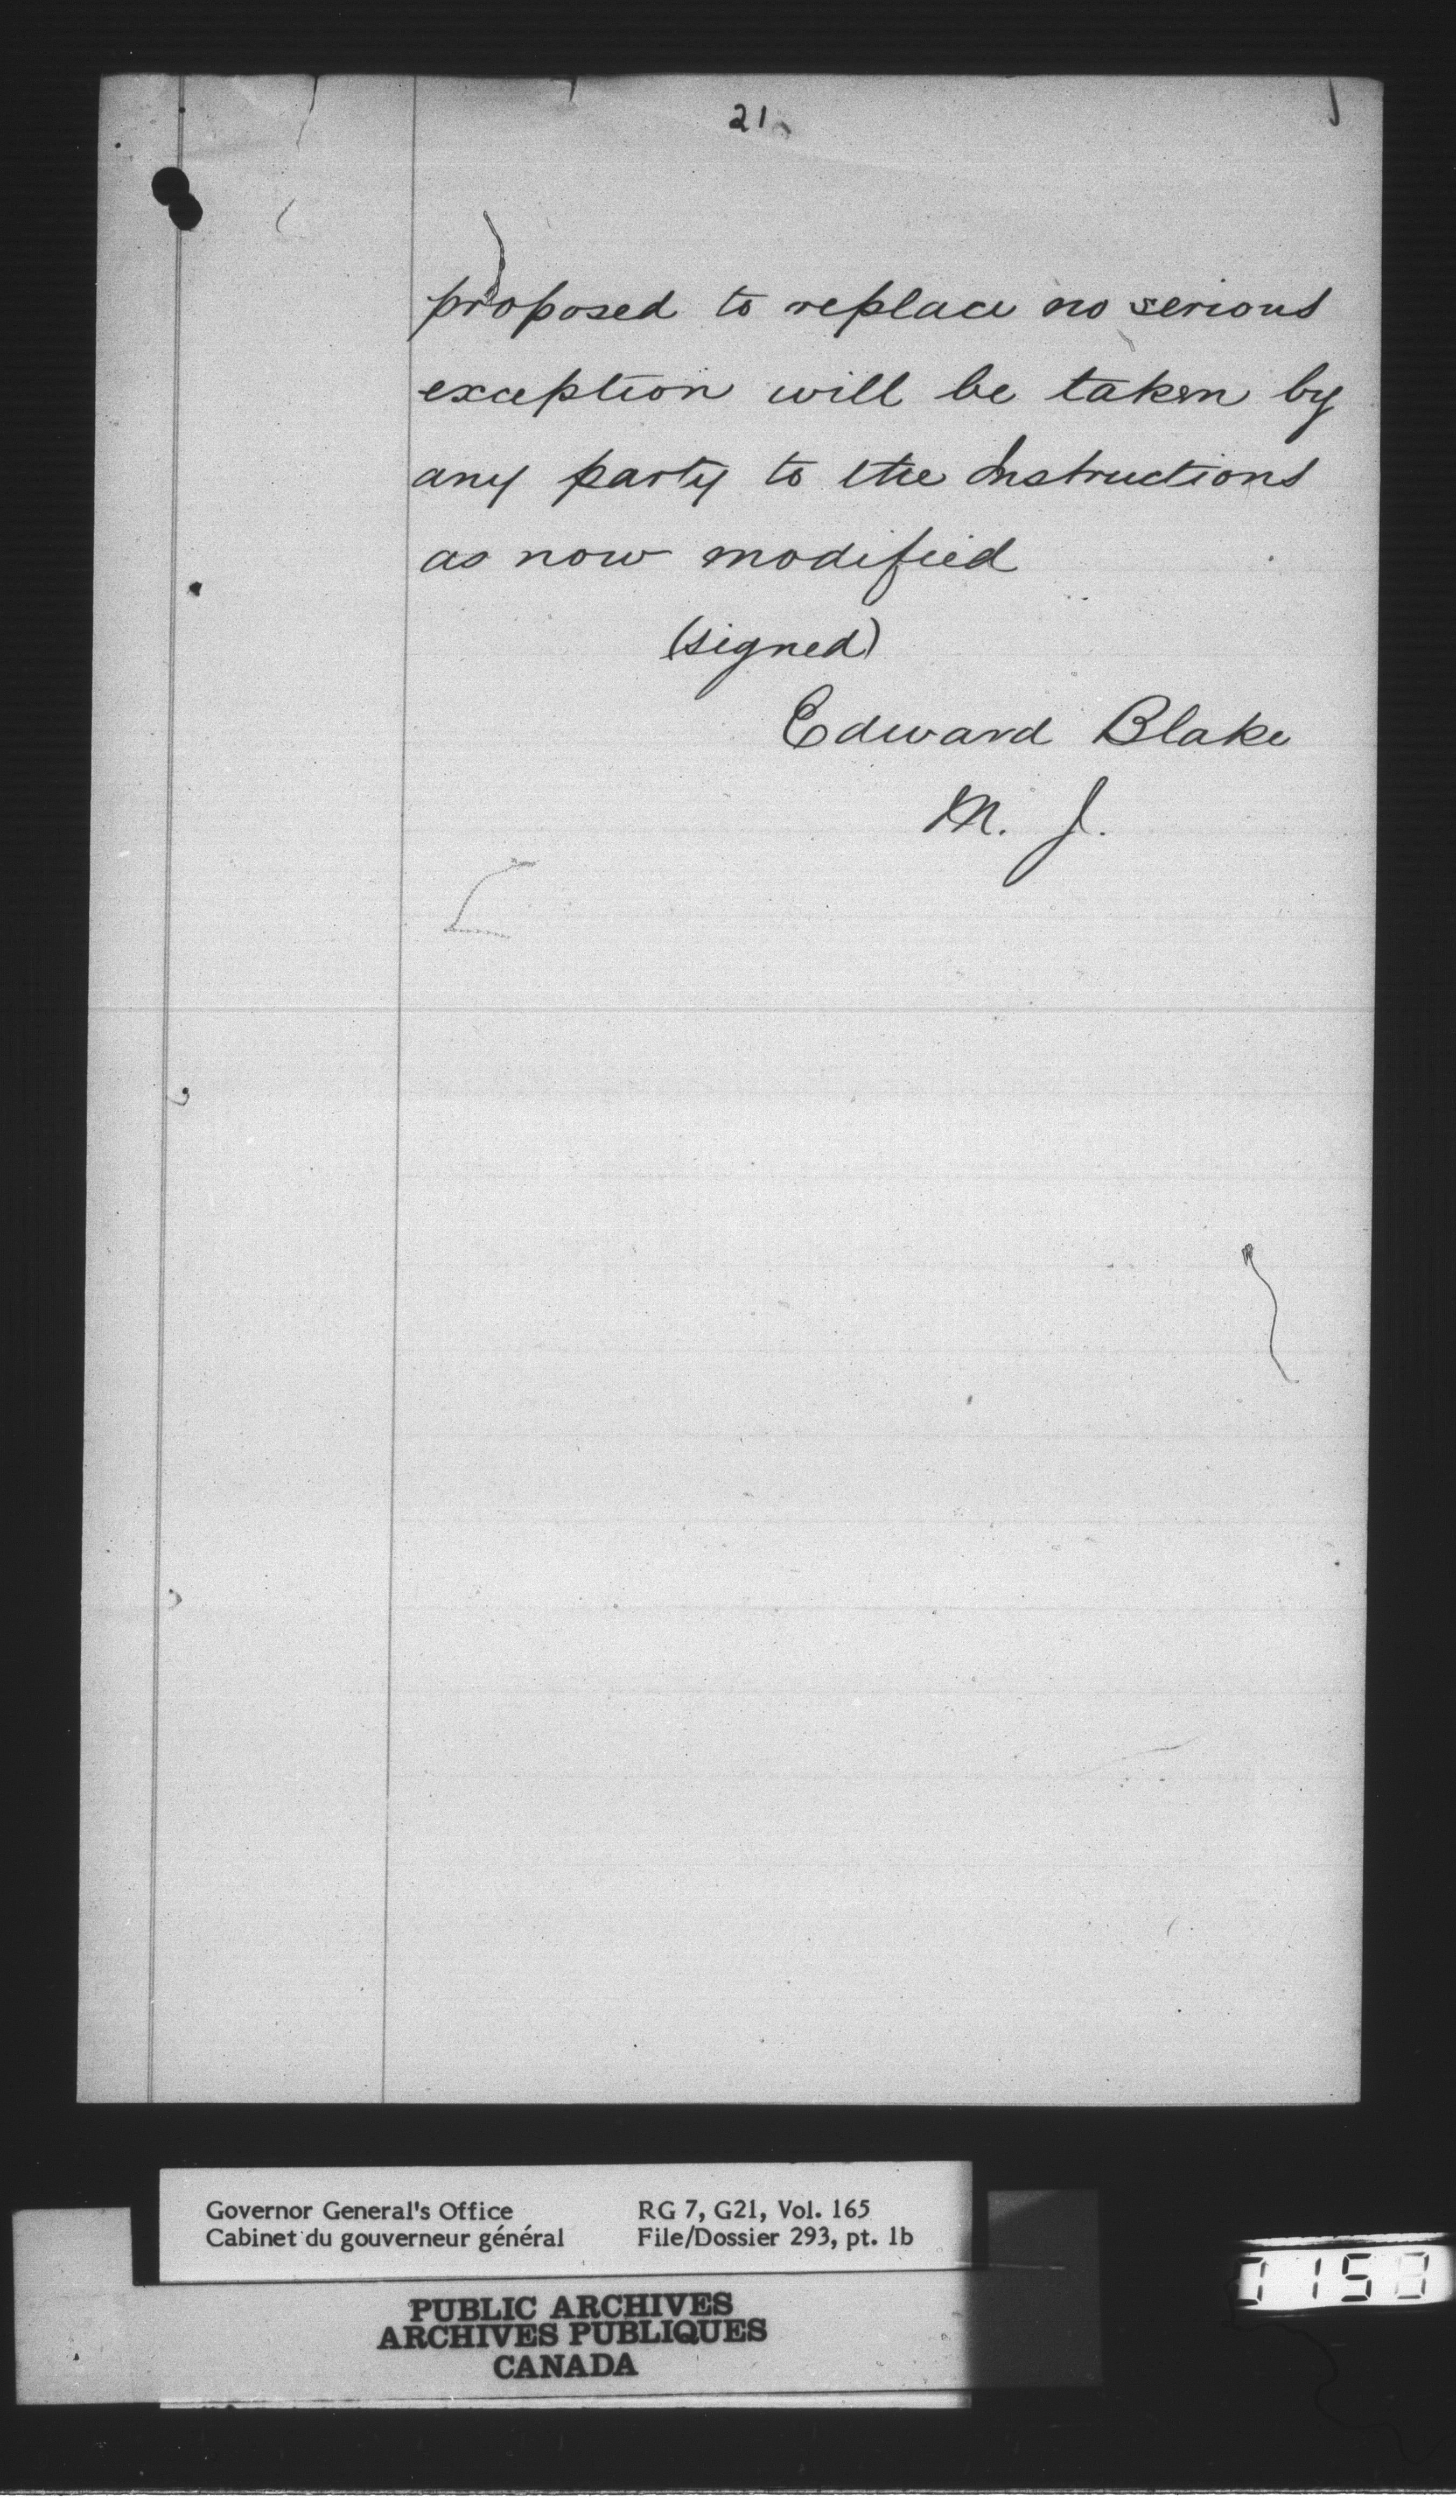 21
proposed to replace no serious
exception will be taken by
any party to the Instructions
as now modified
(signed)
Edward Blake
M. J.
Governor General's Office RG 7, G21, Vol. 165
Cabinet du gouverneur général File/Dossier 293, pt. 1b
PUBLIC ARCHIVES
ARCHIVES PUBLIQUES
CANADA